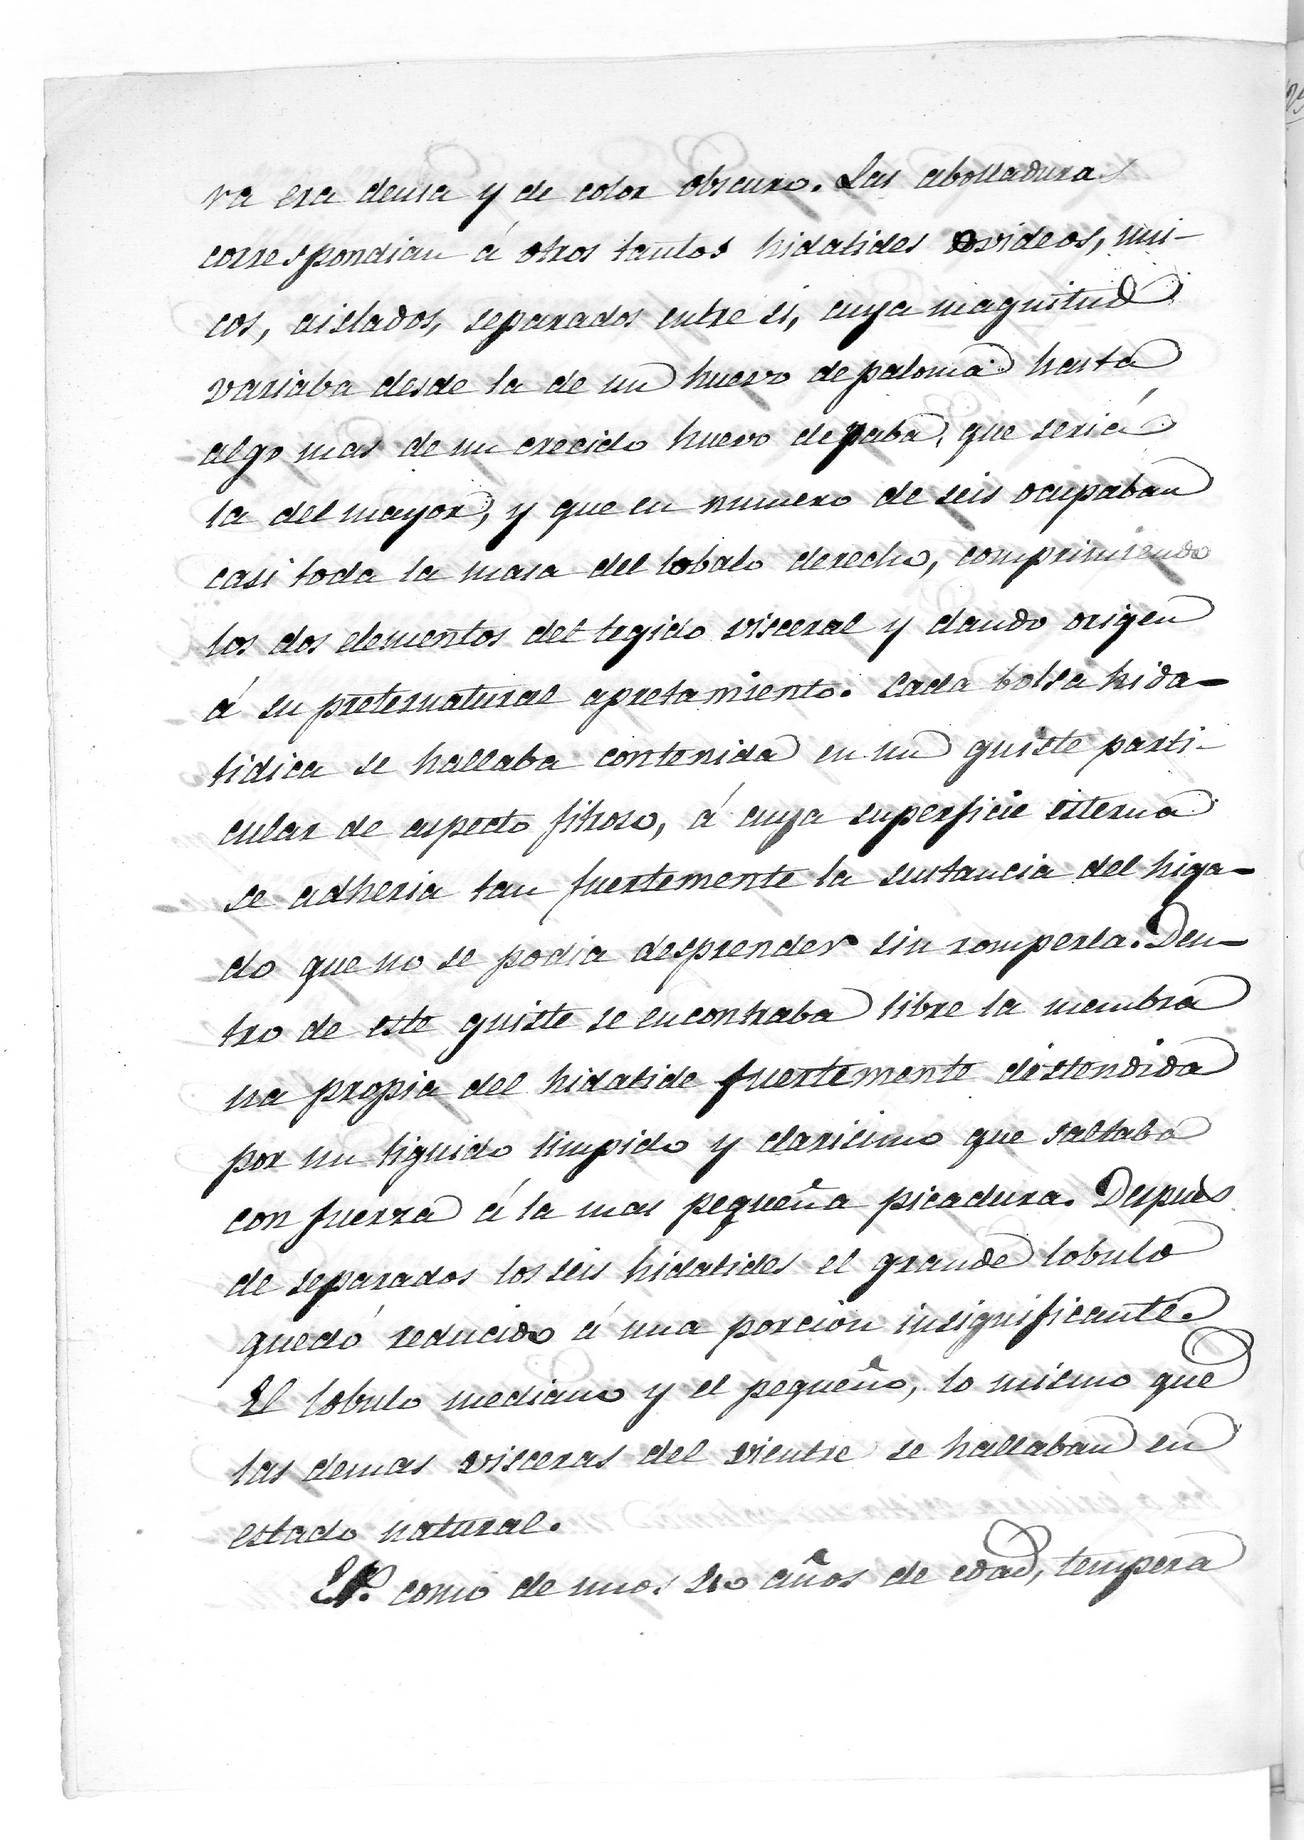 va era densa y de color obscuro. Las abolladuras
correspondian á otros tantos hidatides ovideos, uni-
cos, aislados, separados entre si, cuya magnitud
variaba desde la de un huevo de paloma hasta
algo mas de un crecido huevo de paba, que seria
la del mayor, y que en numero de seis ocupaban
casi toda la masa del lobalo derecho, comprimiendo
los dos elementos del tegido visceral y dando origen
á su preternatural apretamiento. Cada bolsa hida-
tidica se hallaba contenida en un quiste parti-
cular de aspecto fibroso, á cuya superficie esterna
se adheria tan fuertemente la sustancia del higa-
do que no se podia desprender sin romperla. Den-
tro de este quiste se encontraba libre la membra
na propia del hidatide fuertemente distendida
por un liquido limpido y clarisimo que saltaba
con fuerza á la mas pequeña picadura. Despues
de separados los seis hidatides el grande lobulo
quedó reducido á una porcion insignificante.
El lobulo mediano y el pequeño, lo mismo que
las demas visceras del vientre se hallaban en
estado natural.
como de unos 20 años de edad, tempera